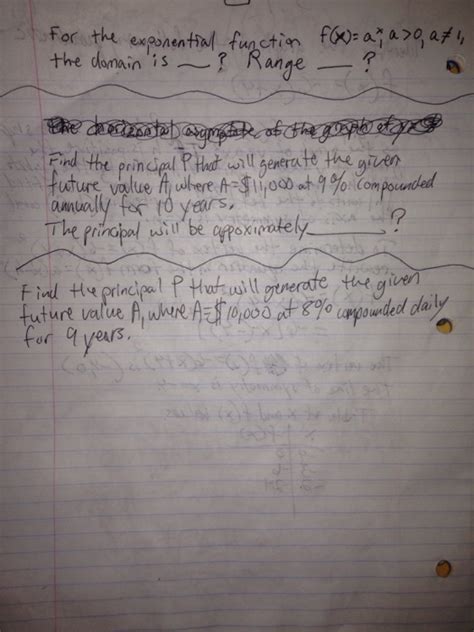 For the exponential function f(x)=aˣ, a>0, a≠1,
the domain is __? Range __?
the horizontal asymptote of the graph of y=
Find the principal P that will generate the given
future value A, where A=$11,000 at 9% compounded
annually for 10 years.
The principal will be appoximately ______?
Find the principal P that will generate the given
future value A, where A=$10,000 at 8% compounded daily
for 9 years.